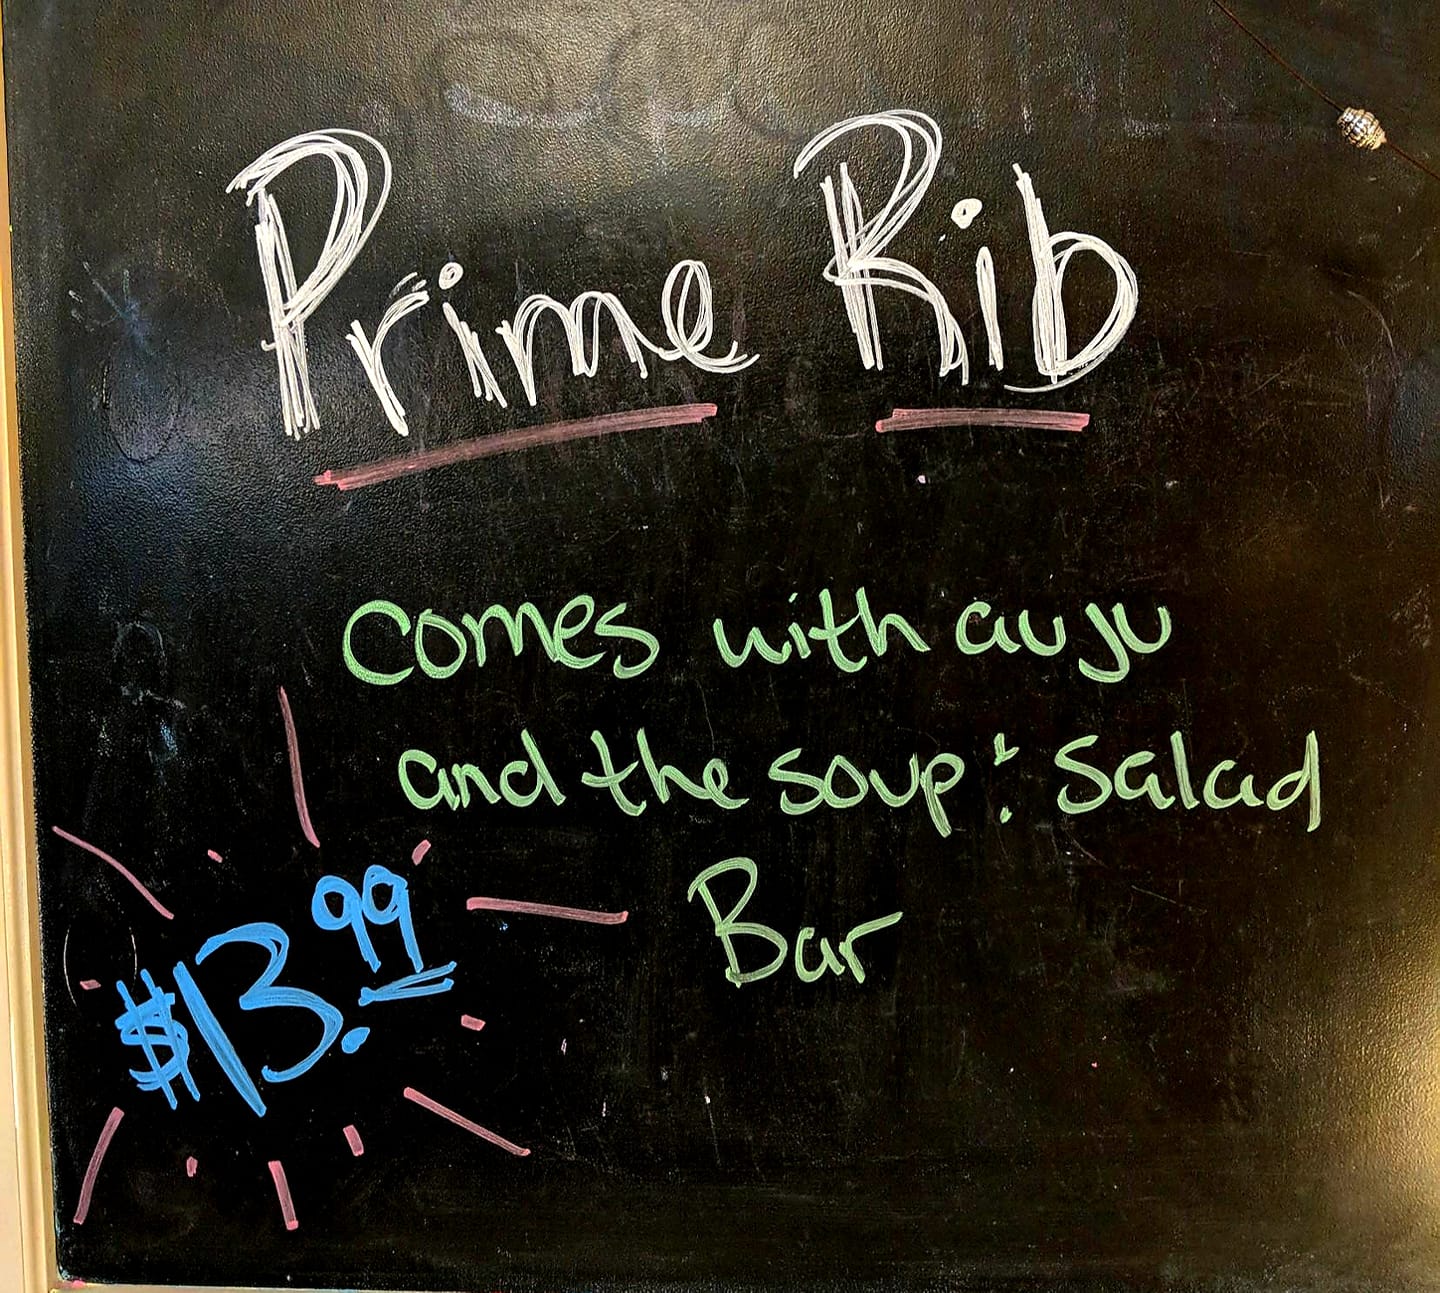 Prime Rib
comes with auju
and the soup & salad
Bar
$13.99